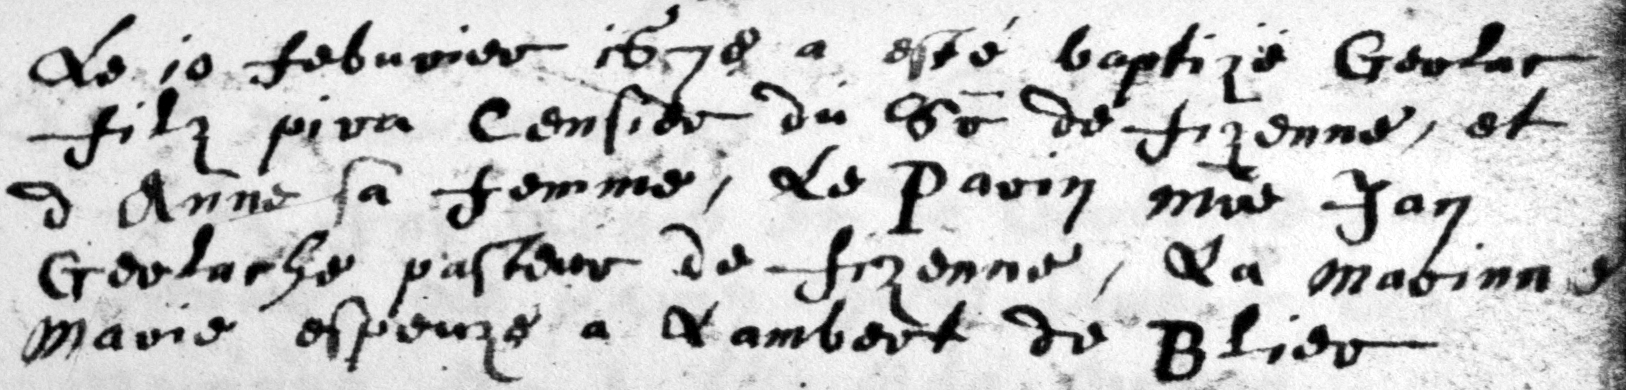 Le 10 febuvrier 1678 a esté baptizé Gerlac
filz pira Censier du Sr de fizenne, et
d Anne sa femme, Le Parin Mre Jan
Gerlache pasteur de fizenne, La Marinne
Marie espeuze a Lambert de Blier